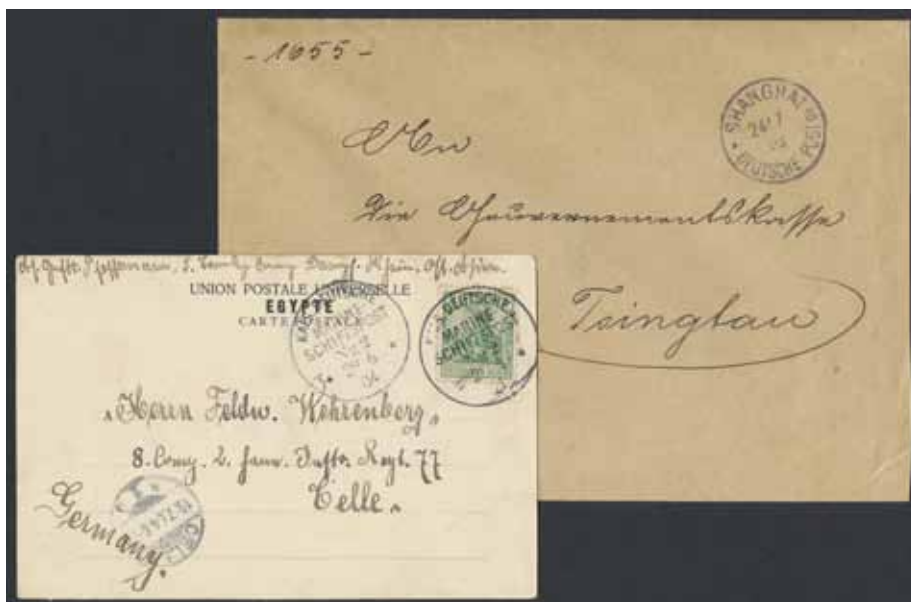 - 1055 -
SHANGHAI
DEUTSCHE POST
An
die Gouvernementskasse
Tsingtau
UNION POSTALE UNIVERSELLE
EGYPTE
CARTE POSTALE
MARINE
SCHIFFSPOST
DEUTSCHE
MARINE
SCHIFFSPOST
Herrn Feldw. Wehrenberg
8. Comp. 2. hann. Inftr. Regt. 77
Celle.
Germany.